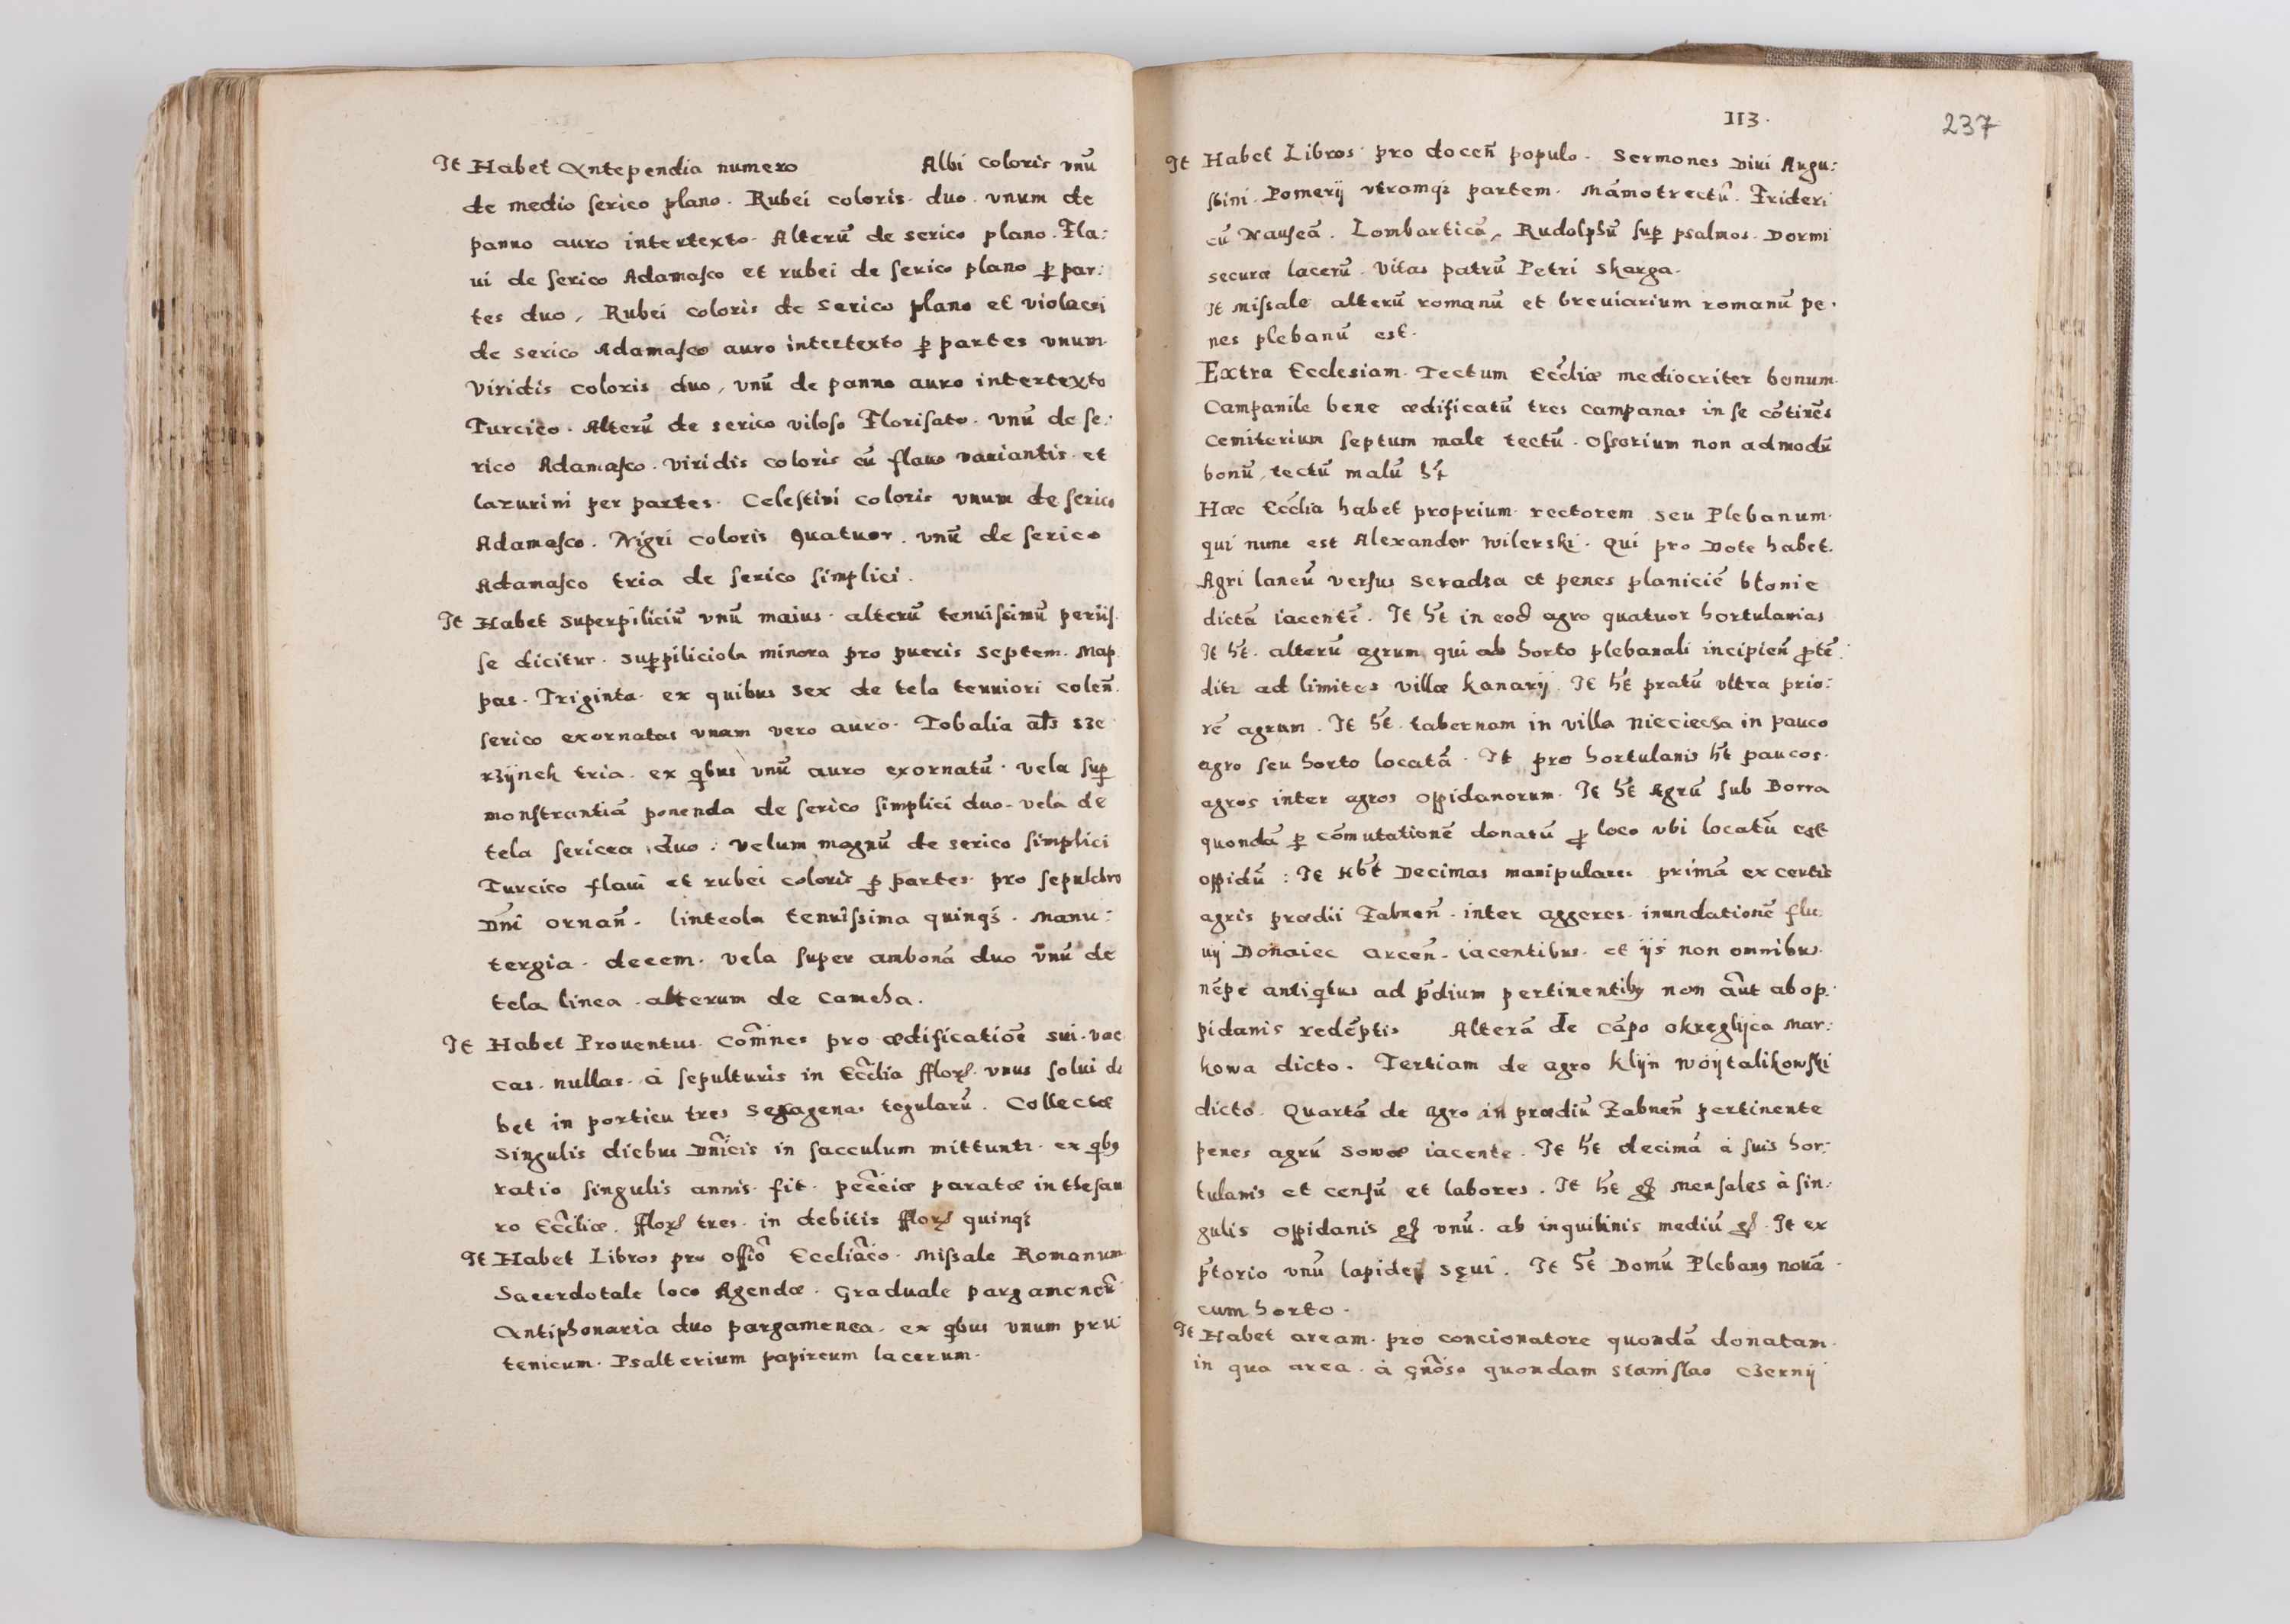 It Habet Antependia numero Albi coloris vnū
de medio serico plano. Rubei coloris. duo. vnum de
panno auro intertexto. Alterū de serico plano. Fla:
ui de serico Adamasco et rubei de serico plano ꝑ par:
tes duo, Rubei coloris de serico plano et violacei
de serico Adamasco auro intertexto ꝑ partes vnum.
Viridis coloris duo, vnū de panno auro intertexto
Turcico. Alterū de serico viloso Florisato. vnū de se:
rico Adamasco. viridis coloris cū flauo variantis. et
lazurini per partes. Celestini coloris vnum de serico
Adamasco. Nigri coloris Quatuor. vnū de serico
Adamasco tria de serico simplici.
It Habet superpiliciū vnū maius. alterū tenuissimū periis.
se dicitur. supꝑiliciola minora pro pueris septem. Map
pas. Triginta. ex quibus sex de tela tenuiori colen̄.
serico exornatas vnam vero auro. Tobalia al̄s sze
rzijnek tria. ex qbus vnū auro exornatū. vela suꝑ
monstrantiā ponenda de serico simplici duo. vela de
tela sericea duo. velum magnū de serico simplici
Turcico flaui et rubei coloris ꝑ partes. pro sepulchro
Dn̄i ornan̄. linteola tenuissima quinqȝ. Manu:
tergia. decem. vela super ambonā duo vnū de
tela linea. alterum de Camcha.
It Habet Prouentus. Com̄nes pro ædificatiōe sui. vac
cas. nullas. à sepulturis in Eccl̄ia fflorꝭ. vnus solui de
bet in porticu tres sexagenas tegularū. Collectæ
singulis diebus Dn̄icis in sacculum mittuntr. ex qbꝰ
ratio singulis annis. fit. pecc̄iæ paratæ in thesau
ro Eccl̄iæ. fflorꝭ tres. in debitis fflorꝭ quinqȝ
It Habet Libros pro offiō Eccliāco. Missale Romanum
Sacerdotale loco Agendæ. Graduale pargamencū
Antiphonaria duo pargamenea. ex qbus vnum pru
tenicum. Psalterium papireum lacerum.
113.
237
It Habet Libros pro docen̄ populo. Sermones Diui Augu:
stini. Pomerij vtramqȝ partem. Mamotrectū. Frideri
cū Nauseā. Lombarticā, Rudolphū suꝑ psalmos. Dormi
securæ lacerū. Vitas patrū Petri Skarga.
It Missale alterū romanū et breuiarium romanū pe.
nes plebanū est.
Extra Ecclesiam. Tectum Eccl̄iæ mediocriter bonum.
Campanile bene ædificatū tres campanas in se cōtinēs
Cemiterium septum male tectū. Ossorium non admodū
bonū, tectū malū ht̄
Hæc Eccl̄ia habet proprium rectorem seu Plebanum.
qui nunc est Alexander Wilerski. Qui pro Dote habet.
Agri laneū versus Seradza et penes planiciē błonie
dictā iacentē. It ht̄ in eod̄ agro quatuor hortulanias
It ht̄. alterū agrum qui ab horto plebanali incipien̄ ꝓtē.
ditr ad limites villæ kanarij. It ht̄ pratū vltra prio:
rē agrum. It ht̄. tabernam in villa Niecieċza in pauco
agro seu horto locatā. It pro hortulanis ht̄ paucos.
agros inter agros oppidanorum. It ht̄ Agrū sub Borra
quondā ꝑ cōmutationē donatū ꝓ loco vbi locatū est
oppidū: It hbt̄ Decimas manipulares primā ex certis
agris prædii Zabnen̄. inter aggeres. inundationē flu
uij Donaiec arcen̄. iacentibus. et ijs non omnibus.
nēpe antiqtus ad p̄dium pertinentibꝰ non aūt ab op:
pidanis redēptis Alterā de Cāpo okreglijca Mar:
kowa dicto. Tertiam de agro klijn Woijtalikowski
dicto. Quartā de agro in prædiū Zabnen̄ pertinente
penes agrū Sowæ iacente. It ht̄ decimā à suis hor:
tulanis et censū et labores. It ht̄ gꝭ Mensales à sin:
gulis oppidanis gꝭ vnū. ab inquilinis mediū gꝭ. It ex
p̄torio vnū lapidem sęui. It ht̄ Domū Plebanꝫ nouā.
cum horto.
It Habet aream. pro concionatore quondā donatam.
in qua area. à Gn̄oso quondam Stanislao Czernij